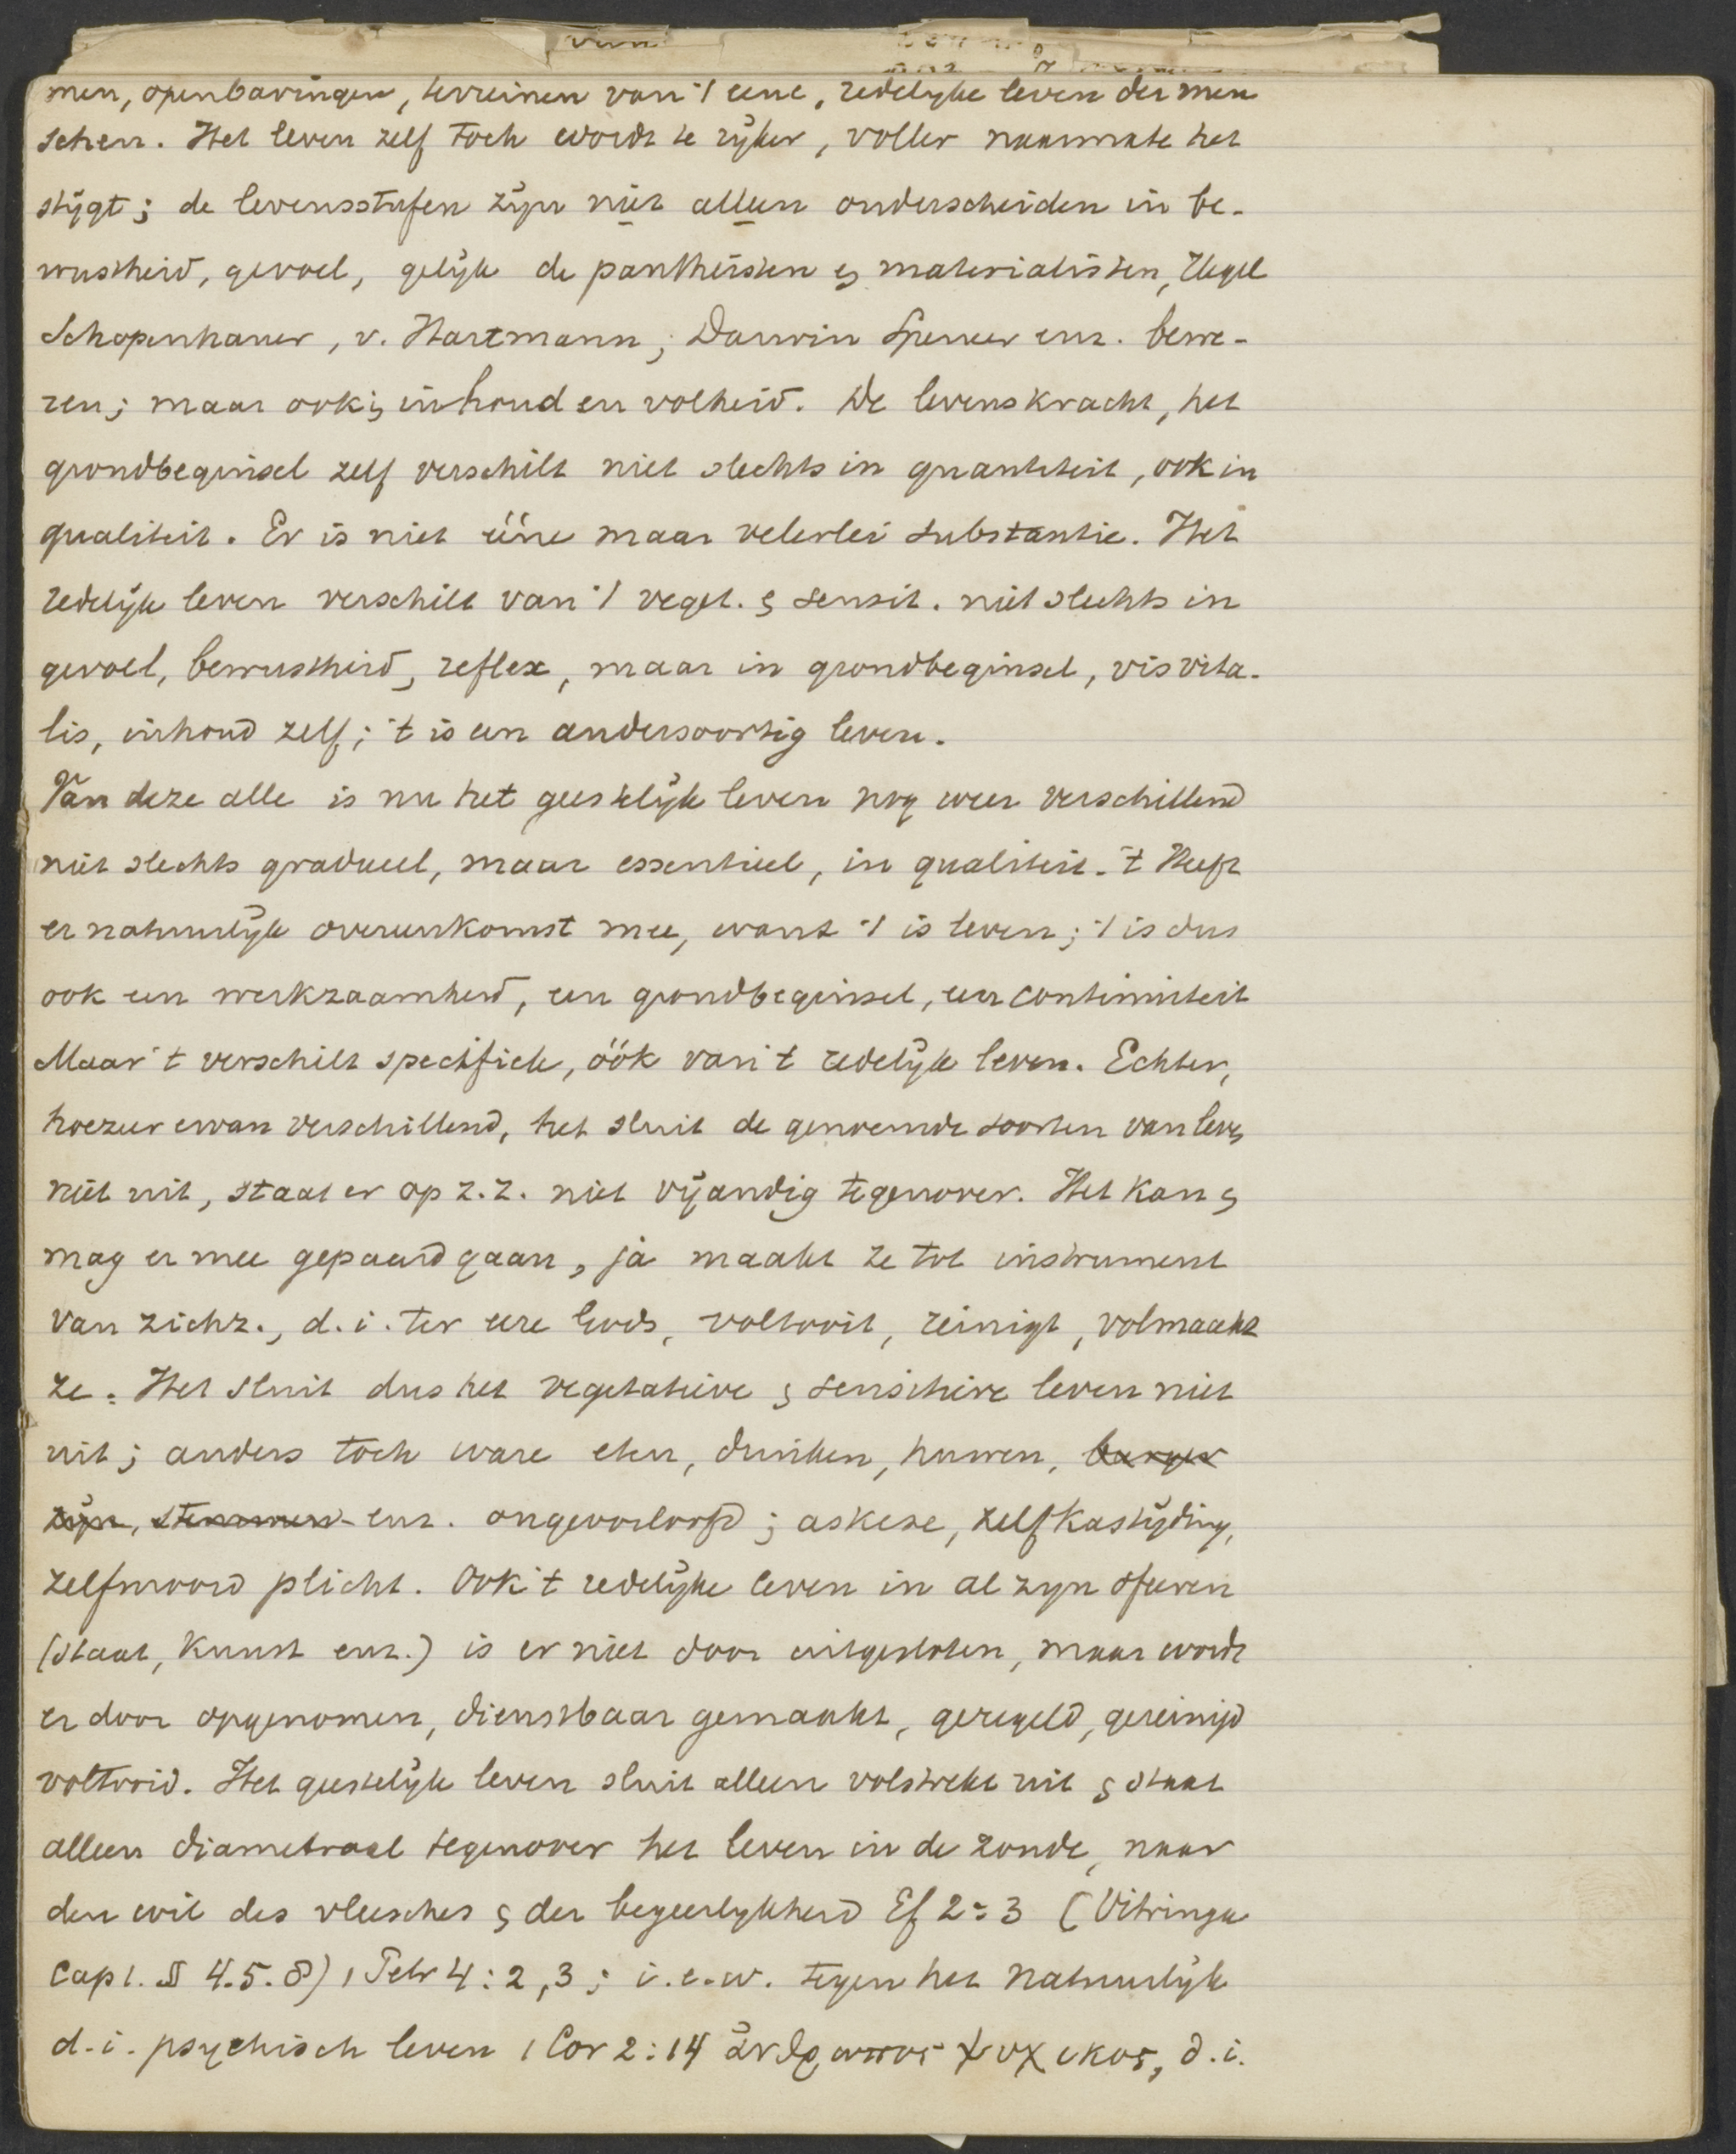 men, openbaringen, terreinen van 't eene, redelijke leven der men
schen. Het leven zelf toch wordt te rijker, voller naarmate het
stijgt; de levensstufen zijn niet alleen onderscheiden in be-
wustheid, gevoel, gelijk de pantheisten & materialisten, Hegel
Schopenhauer, v. Hartmann, Darwin Spencer enz. bewe-
ren; maar ook in inhoud en volheid. De levenskracht, het
grondbeginsel zelf verschilt niet slechts in quantiteit, ook in
qualiteit. Er is niet ééne maar velerlei substantie. Het
redelijk leven verschilt van 't veget. & sensit. niet slechts in
gevoel, bewustheid, reflex, maar in grondbeginsel, vis vita-
lis, inhoud zelf; 't is een andersoortig leven.
Van deze alle is nu het geestelijk leven nog weer verschillend
niet slechts gradueel, maar essentieel, in qualiteit. 't Heeft
er natuurlijk overeenkomst mee, want 't is leven; 't is dus
ook een werkzaamheid, een grondbeginsel, een continuiteit
Maar 't verschilt specifiek, óók van 't redelijk leven. Echter,
hoezeer ervan verschillend, het sluit de genoemde soorten van leven
niet uit, staat er op z.z. niet vijandig tegenover. Het kan &
mag er mee gepaard gaan, ja maakt ze tot instrument
van zichz., d.i. ter eere Gods, voltooit, reinigt, volmaakt
ze. Het sluit dus het vegetatieve & sensitieve leven niet
uit; anders toch ware eten, drinken, huwen, burger
zijn, stemmen enz. ongeoorloofd; askese, zelfkastijding,
zelfmoord plicht. Ook 't redelijke leven in al zijn sferen
(staat, kunst enz.) is er niet door uitgesloten, maar wordt
er door opgenomen, dienstbaar gemaakt, geregeld, gereinigd
voltooid. Het geestelijk leven sluit alleen volstrekt uit & staat
alleen diametraal tegenover het leven in de zonde, naar
den wil des vleesches & der begeerlijkheid Ef 2:3 (Vitringa
Cap 1. § 4.5.8) 1 Petr 4:2,3; i.e.w. tegen het natuurlijk
d.i. psychisch leven 1 Cor 2:14 ἀνθρωπος ψυχικος, d.i.